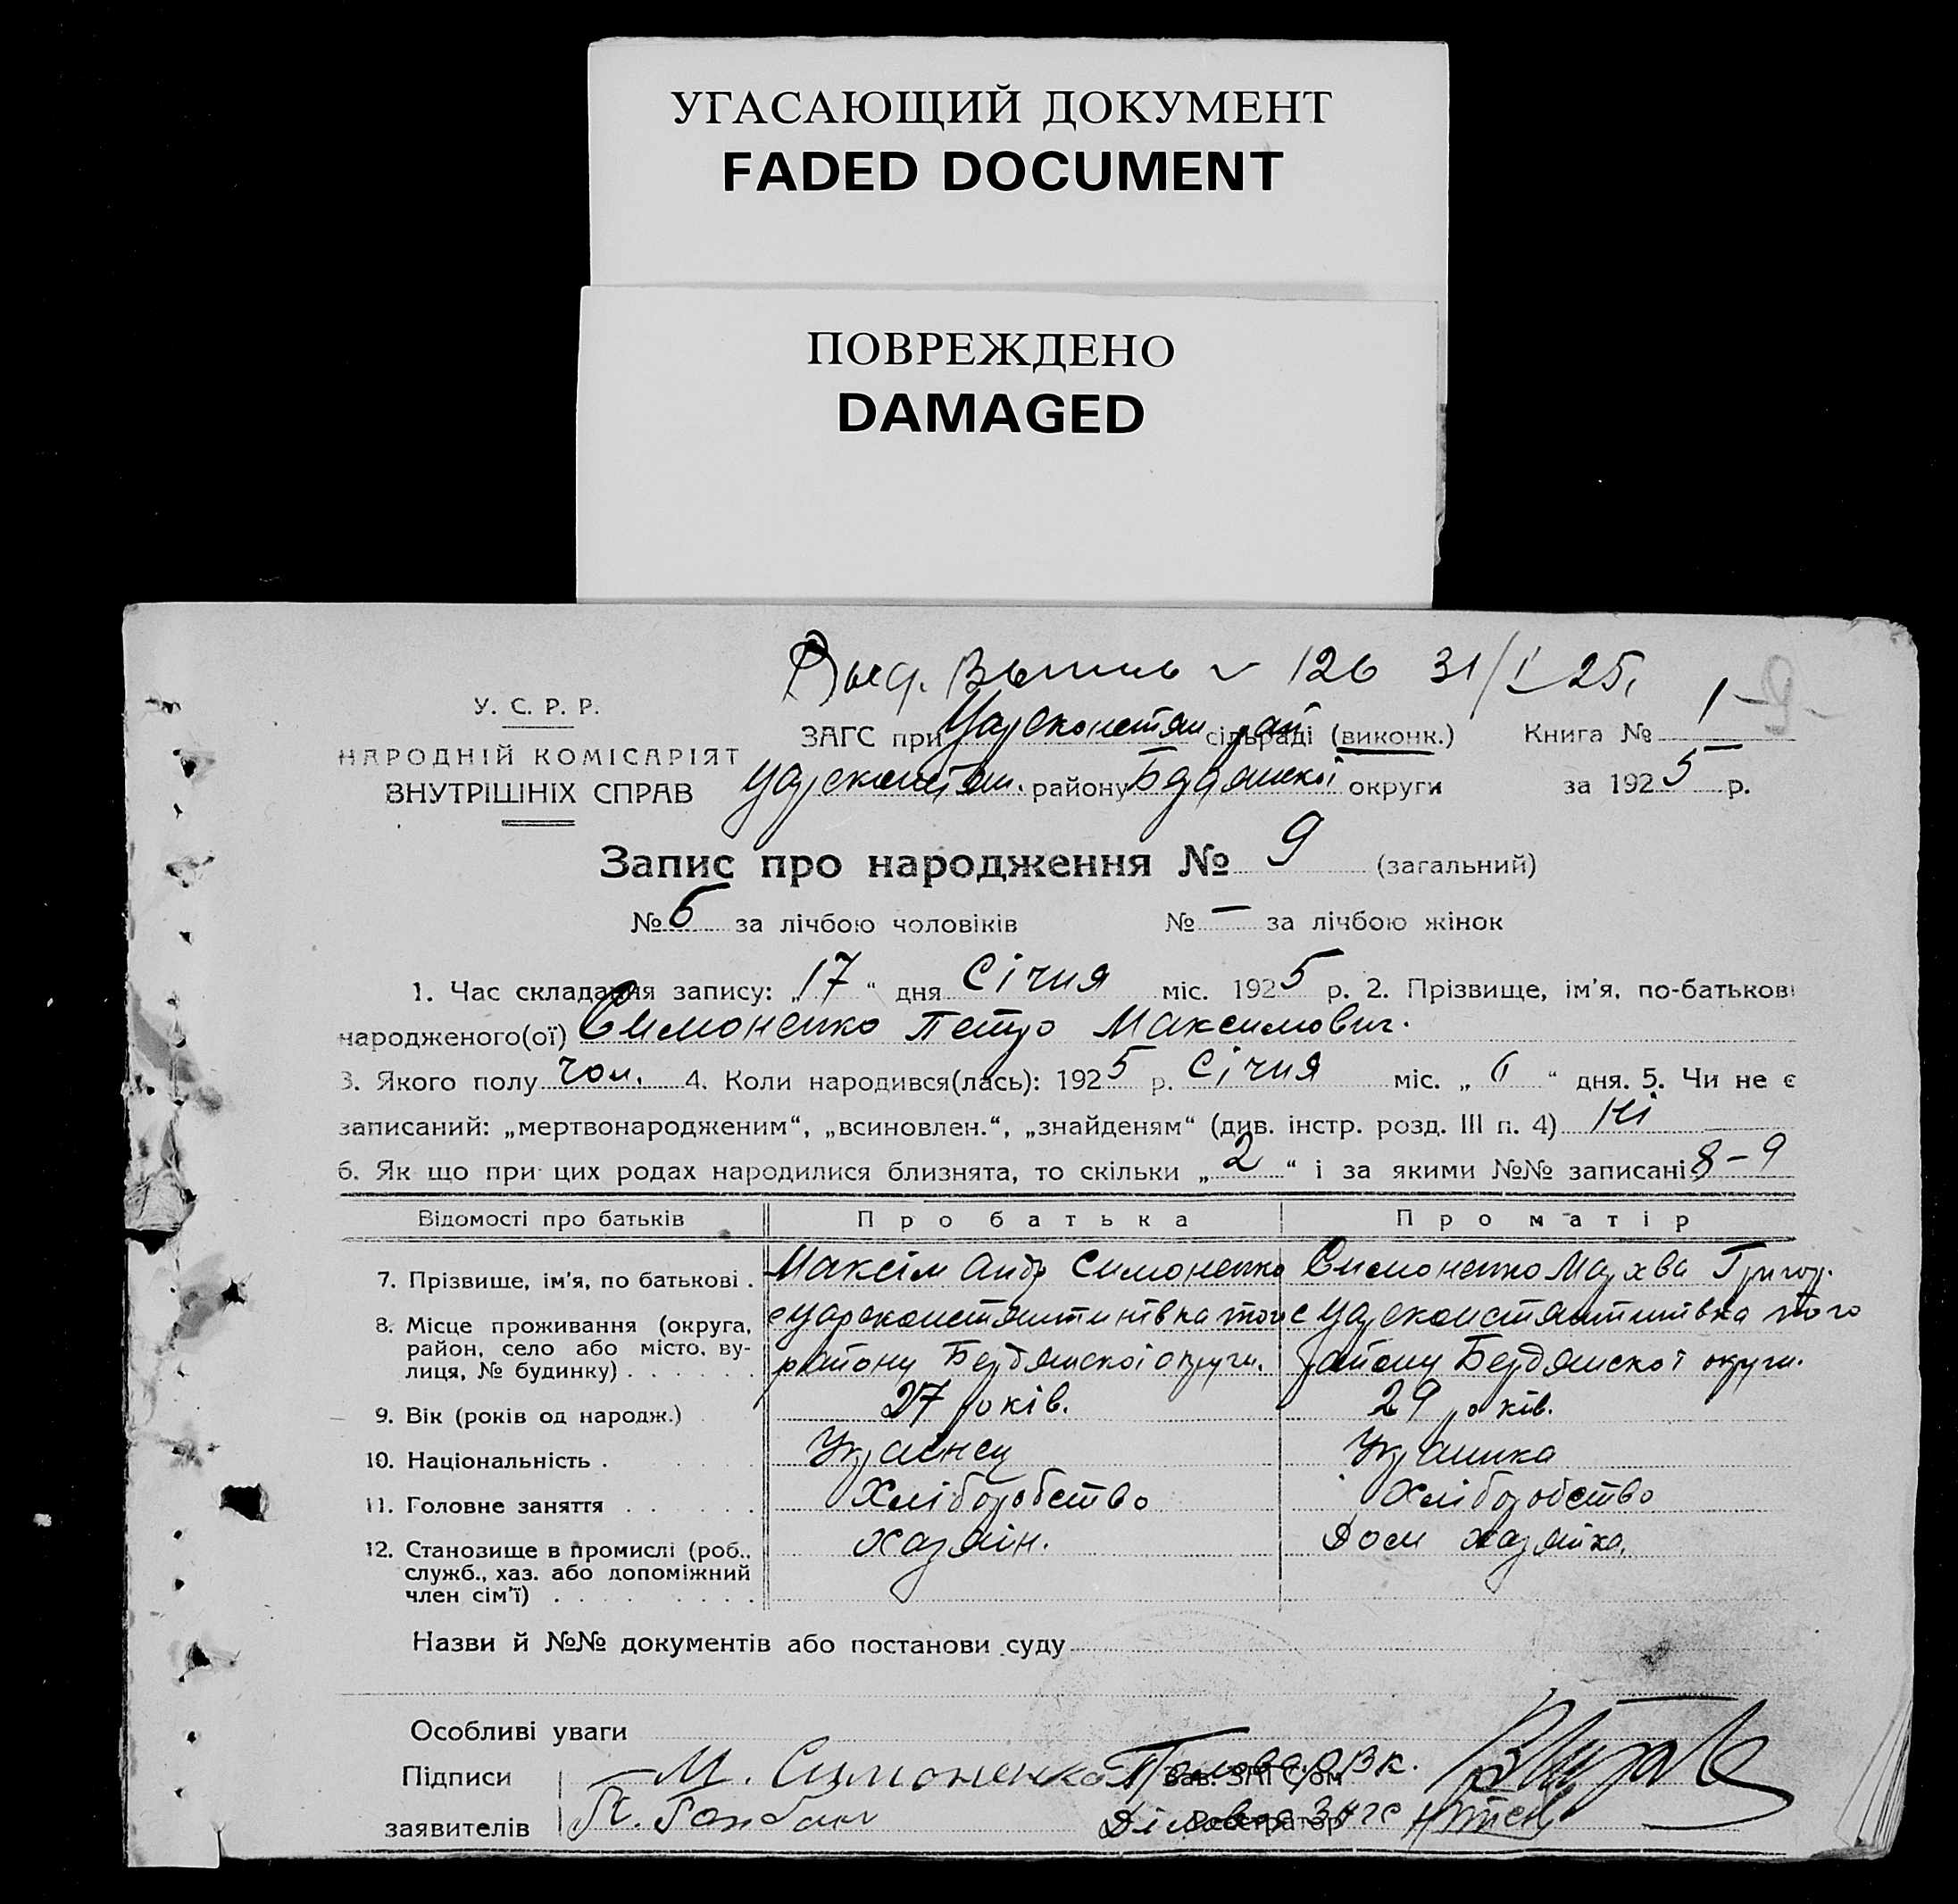 УГАСАЮЩИЙ ДОКУМЕНТ
FADED DOCUMENT
ПОВРЕЖДЕНО
DAMAGED
126 31/I 25.
У. С. Р. Р.
НАРОДНІЙ КОМІСАРІЯТ
ВНУТРІШНІХ СПРАВ
ЗАГС при Цареконстян рай сільраді (виконк.) Книга № 1
Цареконстян. району Бердянської округи за 1925 р.
Запис про народження № 9 (загальний)
№ 6 за лічбою чоловіків № — за лічбою жінок
1. Час складання запису: „17“ дня Січня міс. 1925 р. 2. Прізвище, ім’я, по-батькові
народженого(ої) Симоненко Петро Максимович.
3. Якого полу чол. 4. Коли народився(лась): 1925 р. Січня міс. „ “ дня. 5. Чи не є
записаний: „мертвонародженим“, „всиновлен.“, „знайденям“ (див. інстр. розд. III п. 4) Ні
6. Як що при цих родах народилися близнята, то скільки „2“ і за якими №№ записані 8-9
Відомості про батьків Про батька Про матір
7. Прізвище, ім’я, по батькові . Максім Андр Симоненко Симоненко Мархва Григор.
8. Місце проживання (округа, район, село або місто, вулиця, № будинку) с Цареконстянтинівка того с Цареконстянтинівка того
району Бердянскої округи. району Бердянскої округи.
9. Вік (років од народж.) 27 років. 29 років.
10. Національність . Украінец Украінка
11. Головне заняття Хліборобство Хліборобство
12. Становище в промислі (роб., служб., хаз. або допоміжний член сім’ї) хазяїн. Дом хазяйка.
Назви й №№ документів або постанови суду
Особливі уваги
Підписи М. Симоненко Голова рвк. Зав. ЗАГС’ом
заявителів Діловод Загс Реєстратор